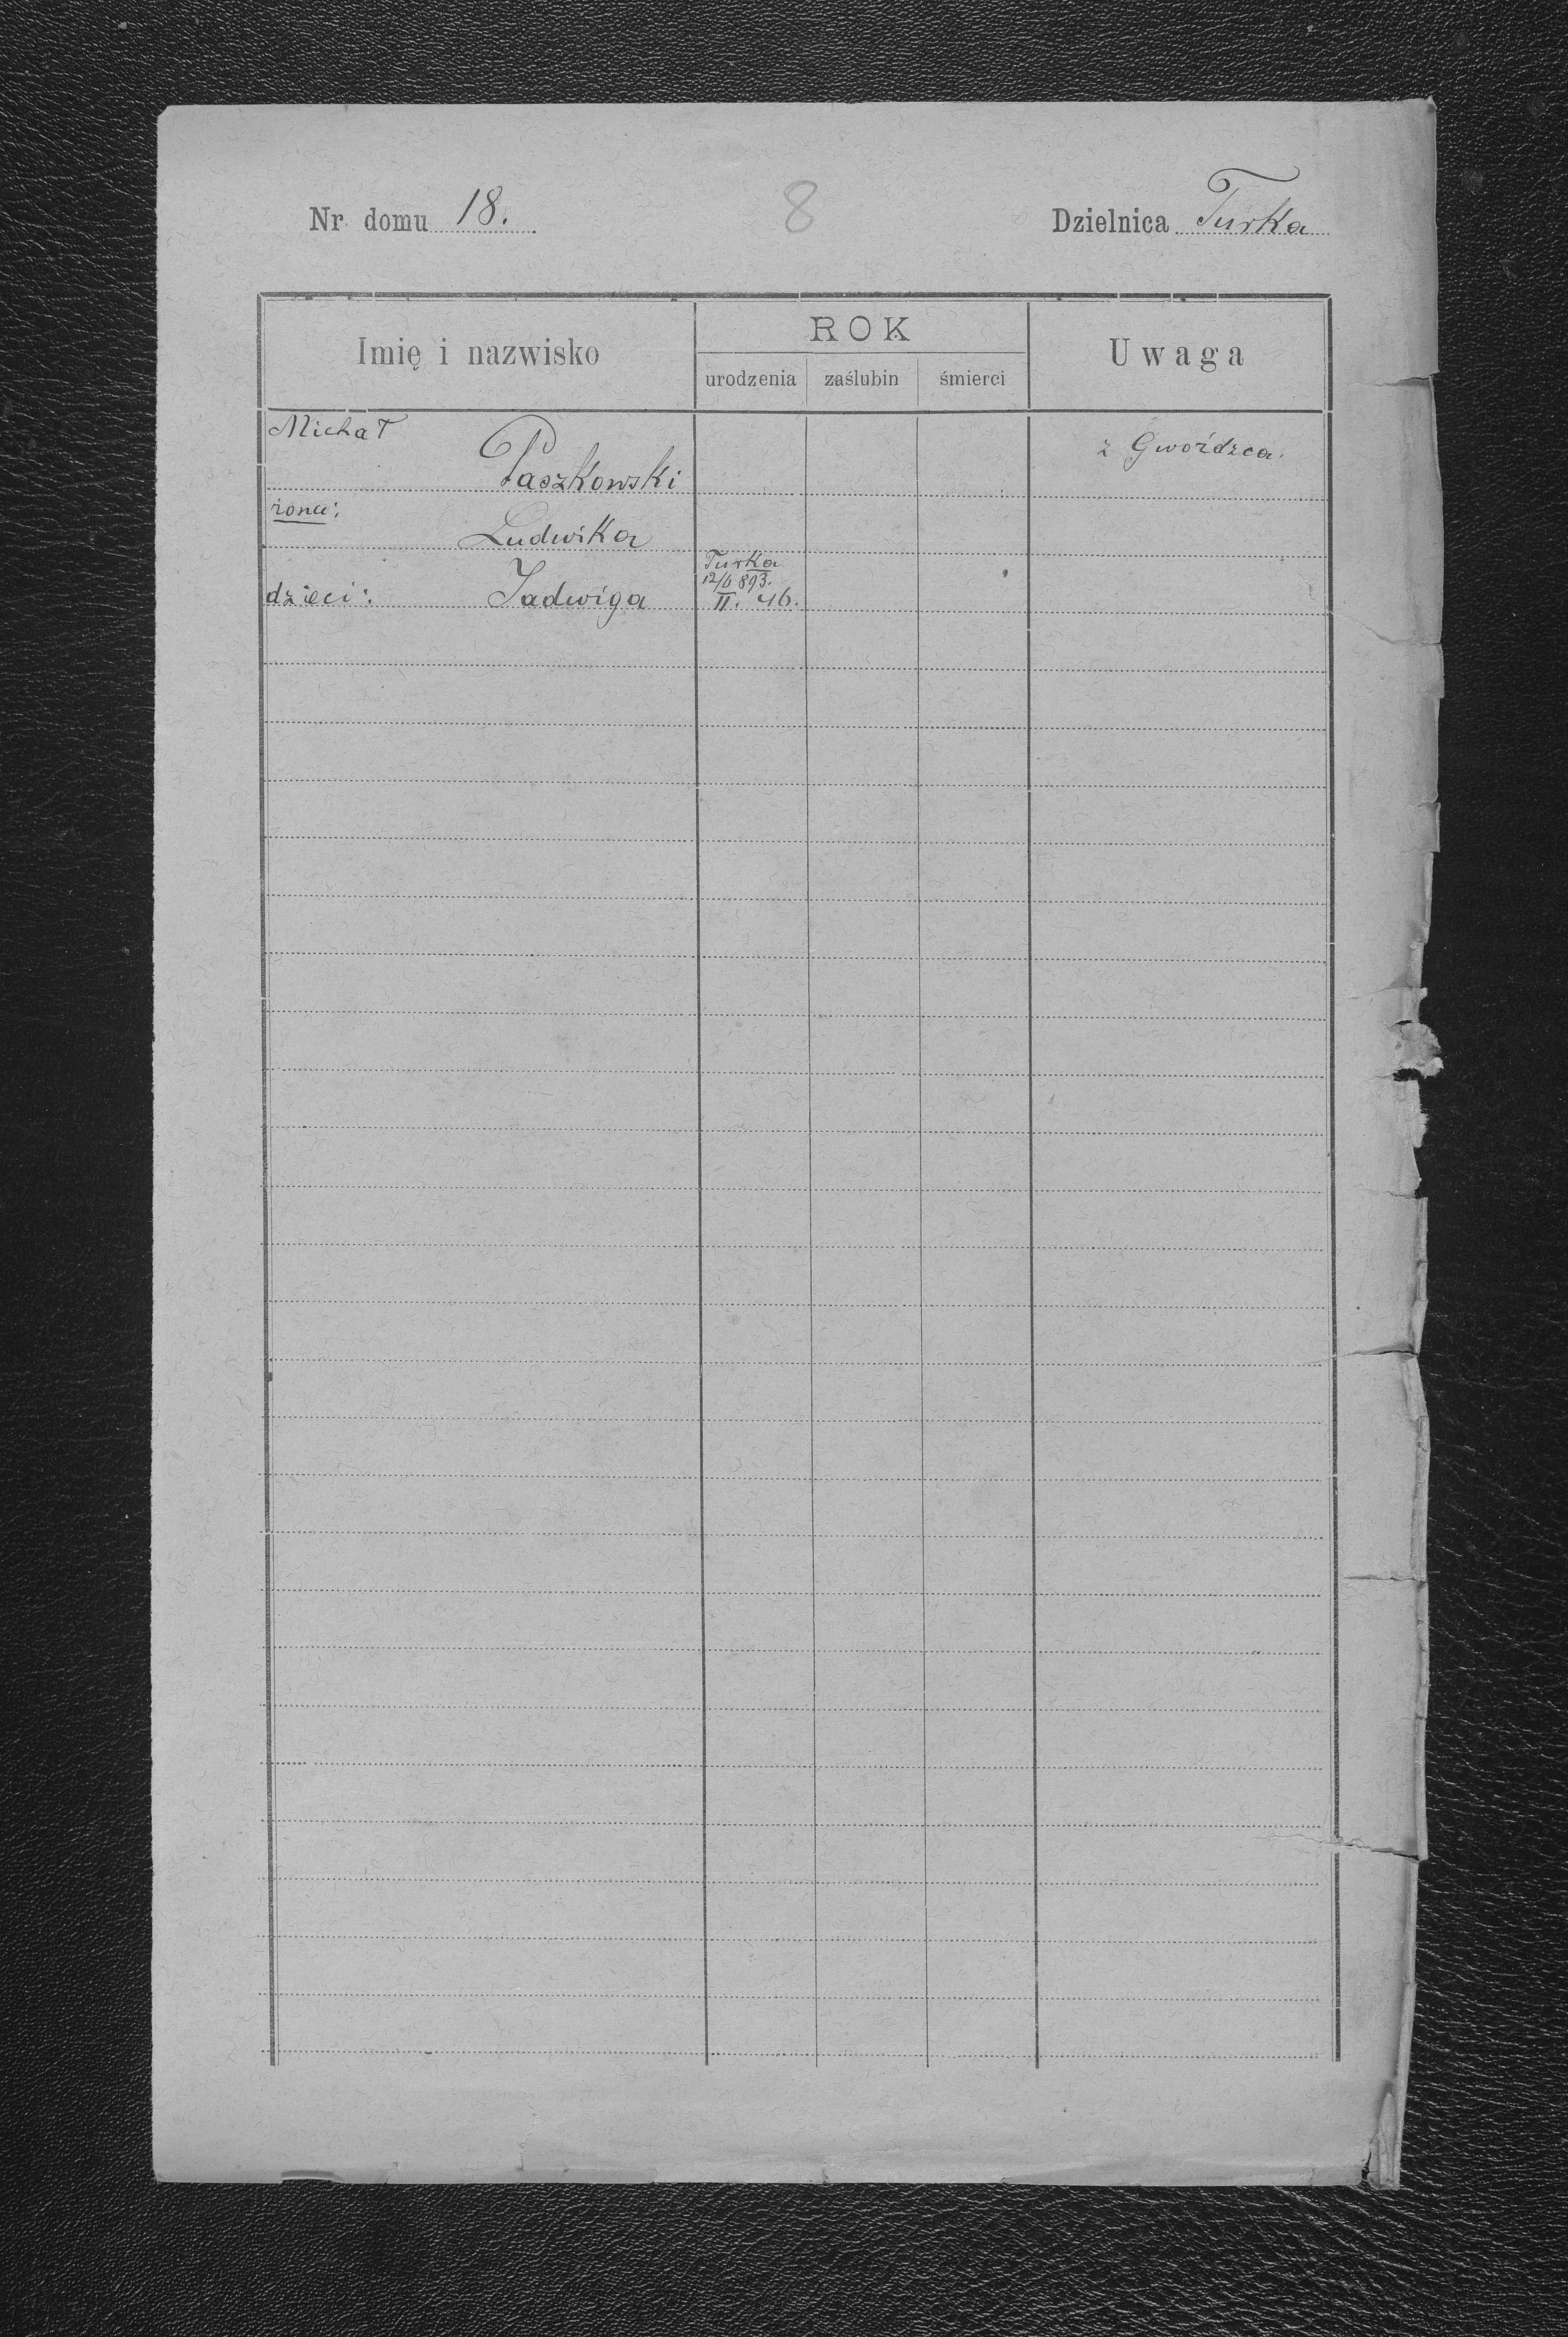 Nr. domu 18. 8 Dzielnica Turka
Imię i nazwisko
ROK
urodzenia zaślubin śmierci
Uwaga
Michał
Paszkowski z Gwoźdzca.
żona:
Ludwika
Turka
12/6 893.
dzieci: Jadwiga II. 46.